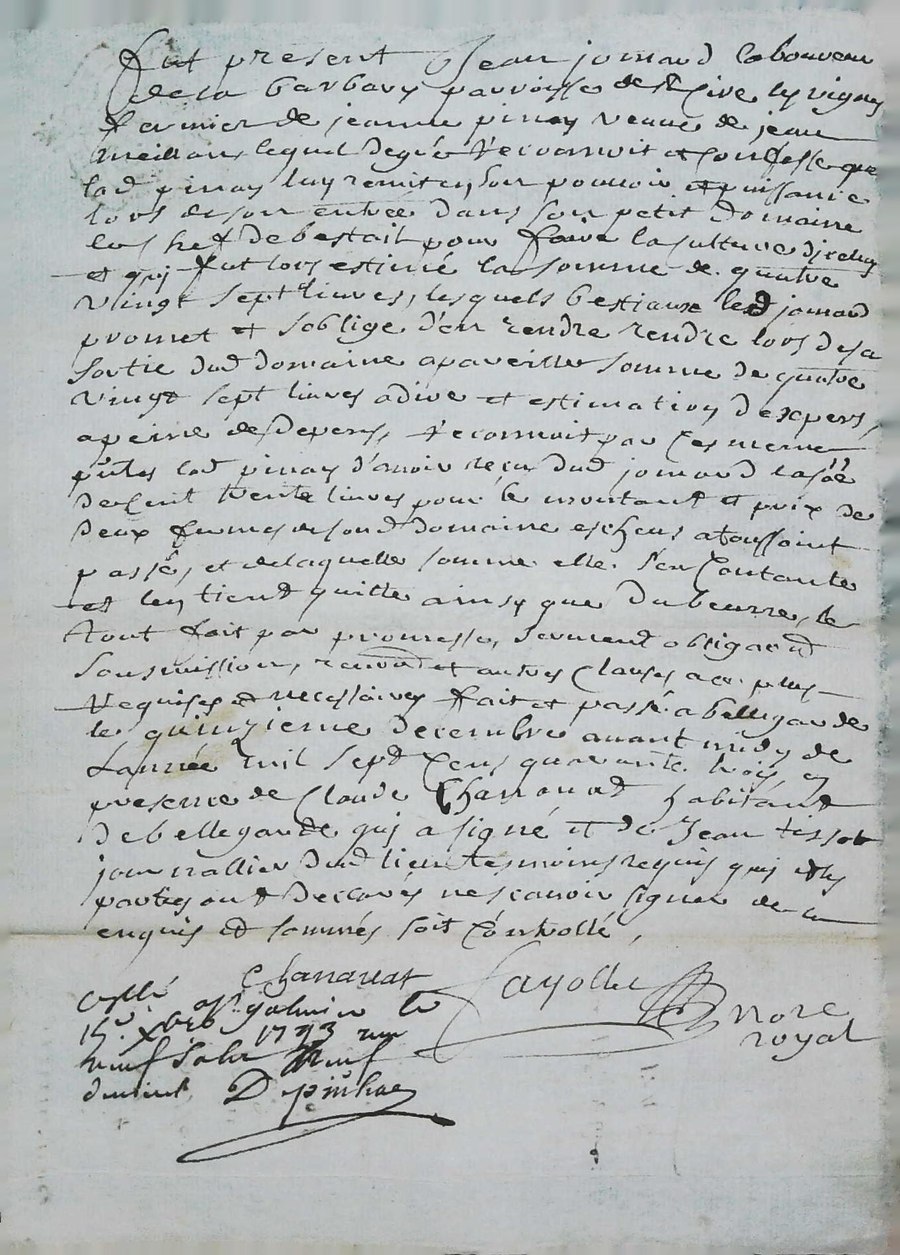 fut present Jean jomard laboureur
de la barbary parroisse de St Cire les vignes
fermier de jeanne pinay veuve de jean
lequel de gré reconnoit et confesse que
lad pinay luy remit en son pouvoir et puissance
lors de son entrée dans son petit domaine
les chef de bestail pour faire la culture dicelluy
et quj fut lors estimé la somme de quatre
vingt sept livres, lesquels bestiaux led jomard
promet et soblige d'en rendre rendre lors de sa
sortie dud domaine apareille somme de quatre
vingt sept livres adire et estimation dexpers,
apeine de depens, reconnoit par ces mesme
pntes lad pinay d'avoir reçu dud jomard la soe
de cent trente livres pour le montant et prix de
deux fermes desond domaine escheus atoussaint
passé, et de laquelle somme elle s'en contante
et len tient quitte ainsy que du beurre, le
tout fait par promesse, serment obligaond
sousmission, renond et autres clauses a ce plus
requises et necessaires fait et passé a bellegarde
le quinzieme decembre avant midy de
Lannée mil sept cens quarante trois, en
presence de Claude Chanavat habitant
de bellegarde quj a signé et de Jean tissot
journallier dud lieu tesmoins requis quj et les
parties ont declarés ne scavoir signer de ce
enquis et sommés soit controllé,
Chanavat Fayolle
nore
royal
collé a St galmier le
15e Xbre 1743 reçu
neuf sols neuf
deniers Depinhac